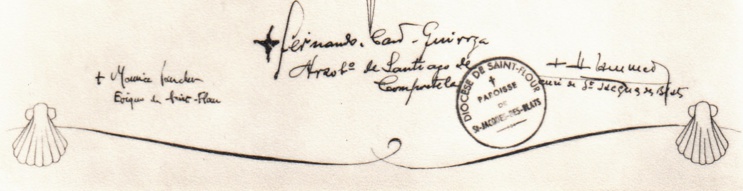 + Fernando. Card. Quiroga
Arzobº de Santiago de
Compostela
+ Maurice
Evêque de Saint-Flour
curé de St Jacques des Blats
DIOCÈSE DE SAINT-FLOUR
PAROISSE
DE
ST-JACQUES-DES-BLATS